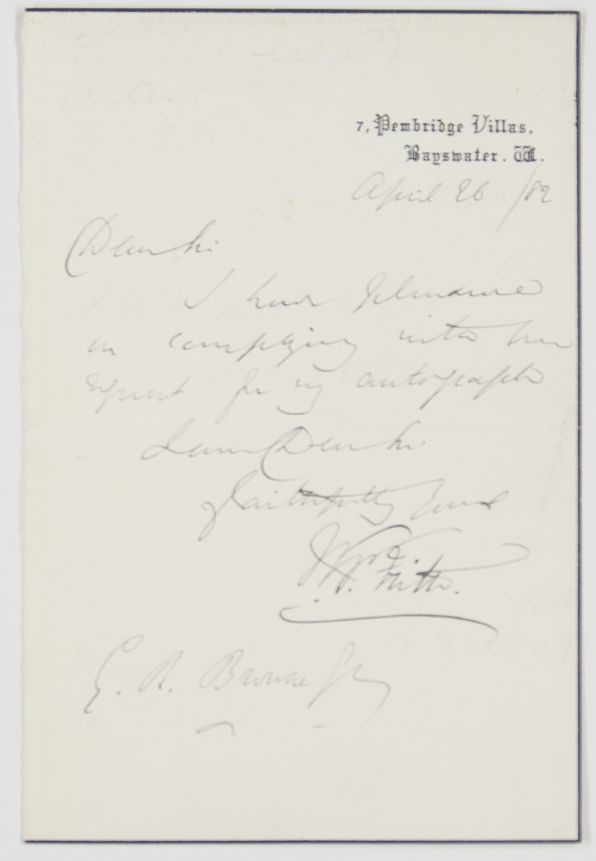 Frith (W P)
Artist
7, Pembridge Villas,
Bayswater. W.
April 26. /82
Dear Sir
I have pleasure
in complying with your
request for my autograph
I am Dear Sir
faithfully yours
W. P. Frith.
E. R. Browne Esq